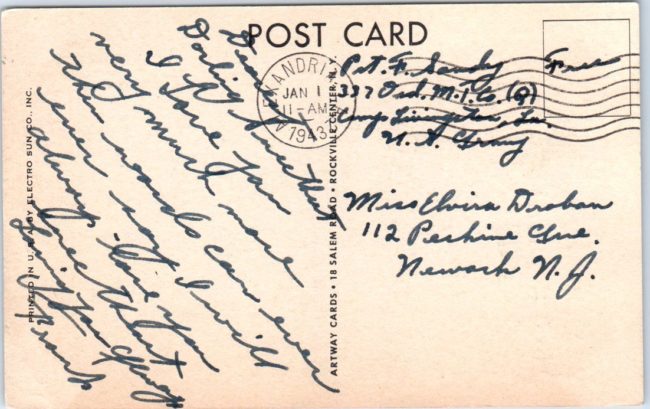 POST CARD
Dearest
Darling Sweetheart
I love you
very much more
then words can ever
ever say. I will
always love you
Sweetheart
Loving You Always
Frank
ALEXANDRIA LA.
JAN 1
11-AM
1943
Pvt. F. Sandy Free
337 Ord. M. Co. (Q)
Camp Livingston, La.
U.S. Army
Miss Elvira Droban
112 Peshine Ave.
Newark N.J.
PRINTED IN U. S. A. BY ELECTRO SUN CO., INC.
ARTWAY CARDS • 18 SALEM ROAD • ROCKVILLE CENTER, N. Y.